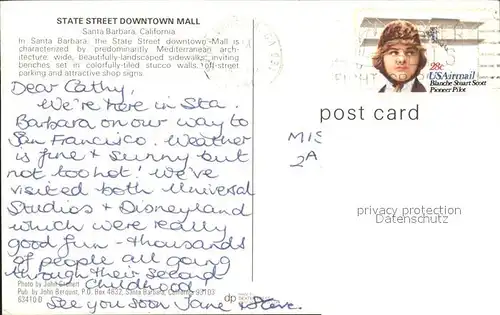 STATE STREET DOWNTOWN MALL
Santa Barbara, California
In Santa Barbara, the State Street downtown Mall is
characterized by predominantly Mediterranean archi-
tecture, wide, beautifully-landscaped sidewalks, inviting
benches set in colorfully-tiled stucco walls, off-street
parking and attractive shop signs.
Dear Cathy,
We're here in Sta.
Barbara on our way to
San Francisco. Weather
is fine & sunny but
not too hot! We've
visited both Universal
Studios & Disneyland
which were really
good fun - thousands
of people all going
through their second
childhood!
See you soon Jane & Steve.
Photo by John
Pub. by John Berquist, P.O. Box 4832, Santa Barbara, California 93103
63410-D
dp
28c
USAirmail
Blanche Stuart Scott
Pioneer Pilot
post card
MIS
2A
privacy protection
Datenschutz